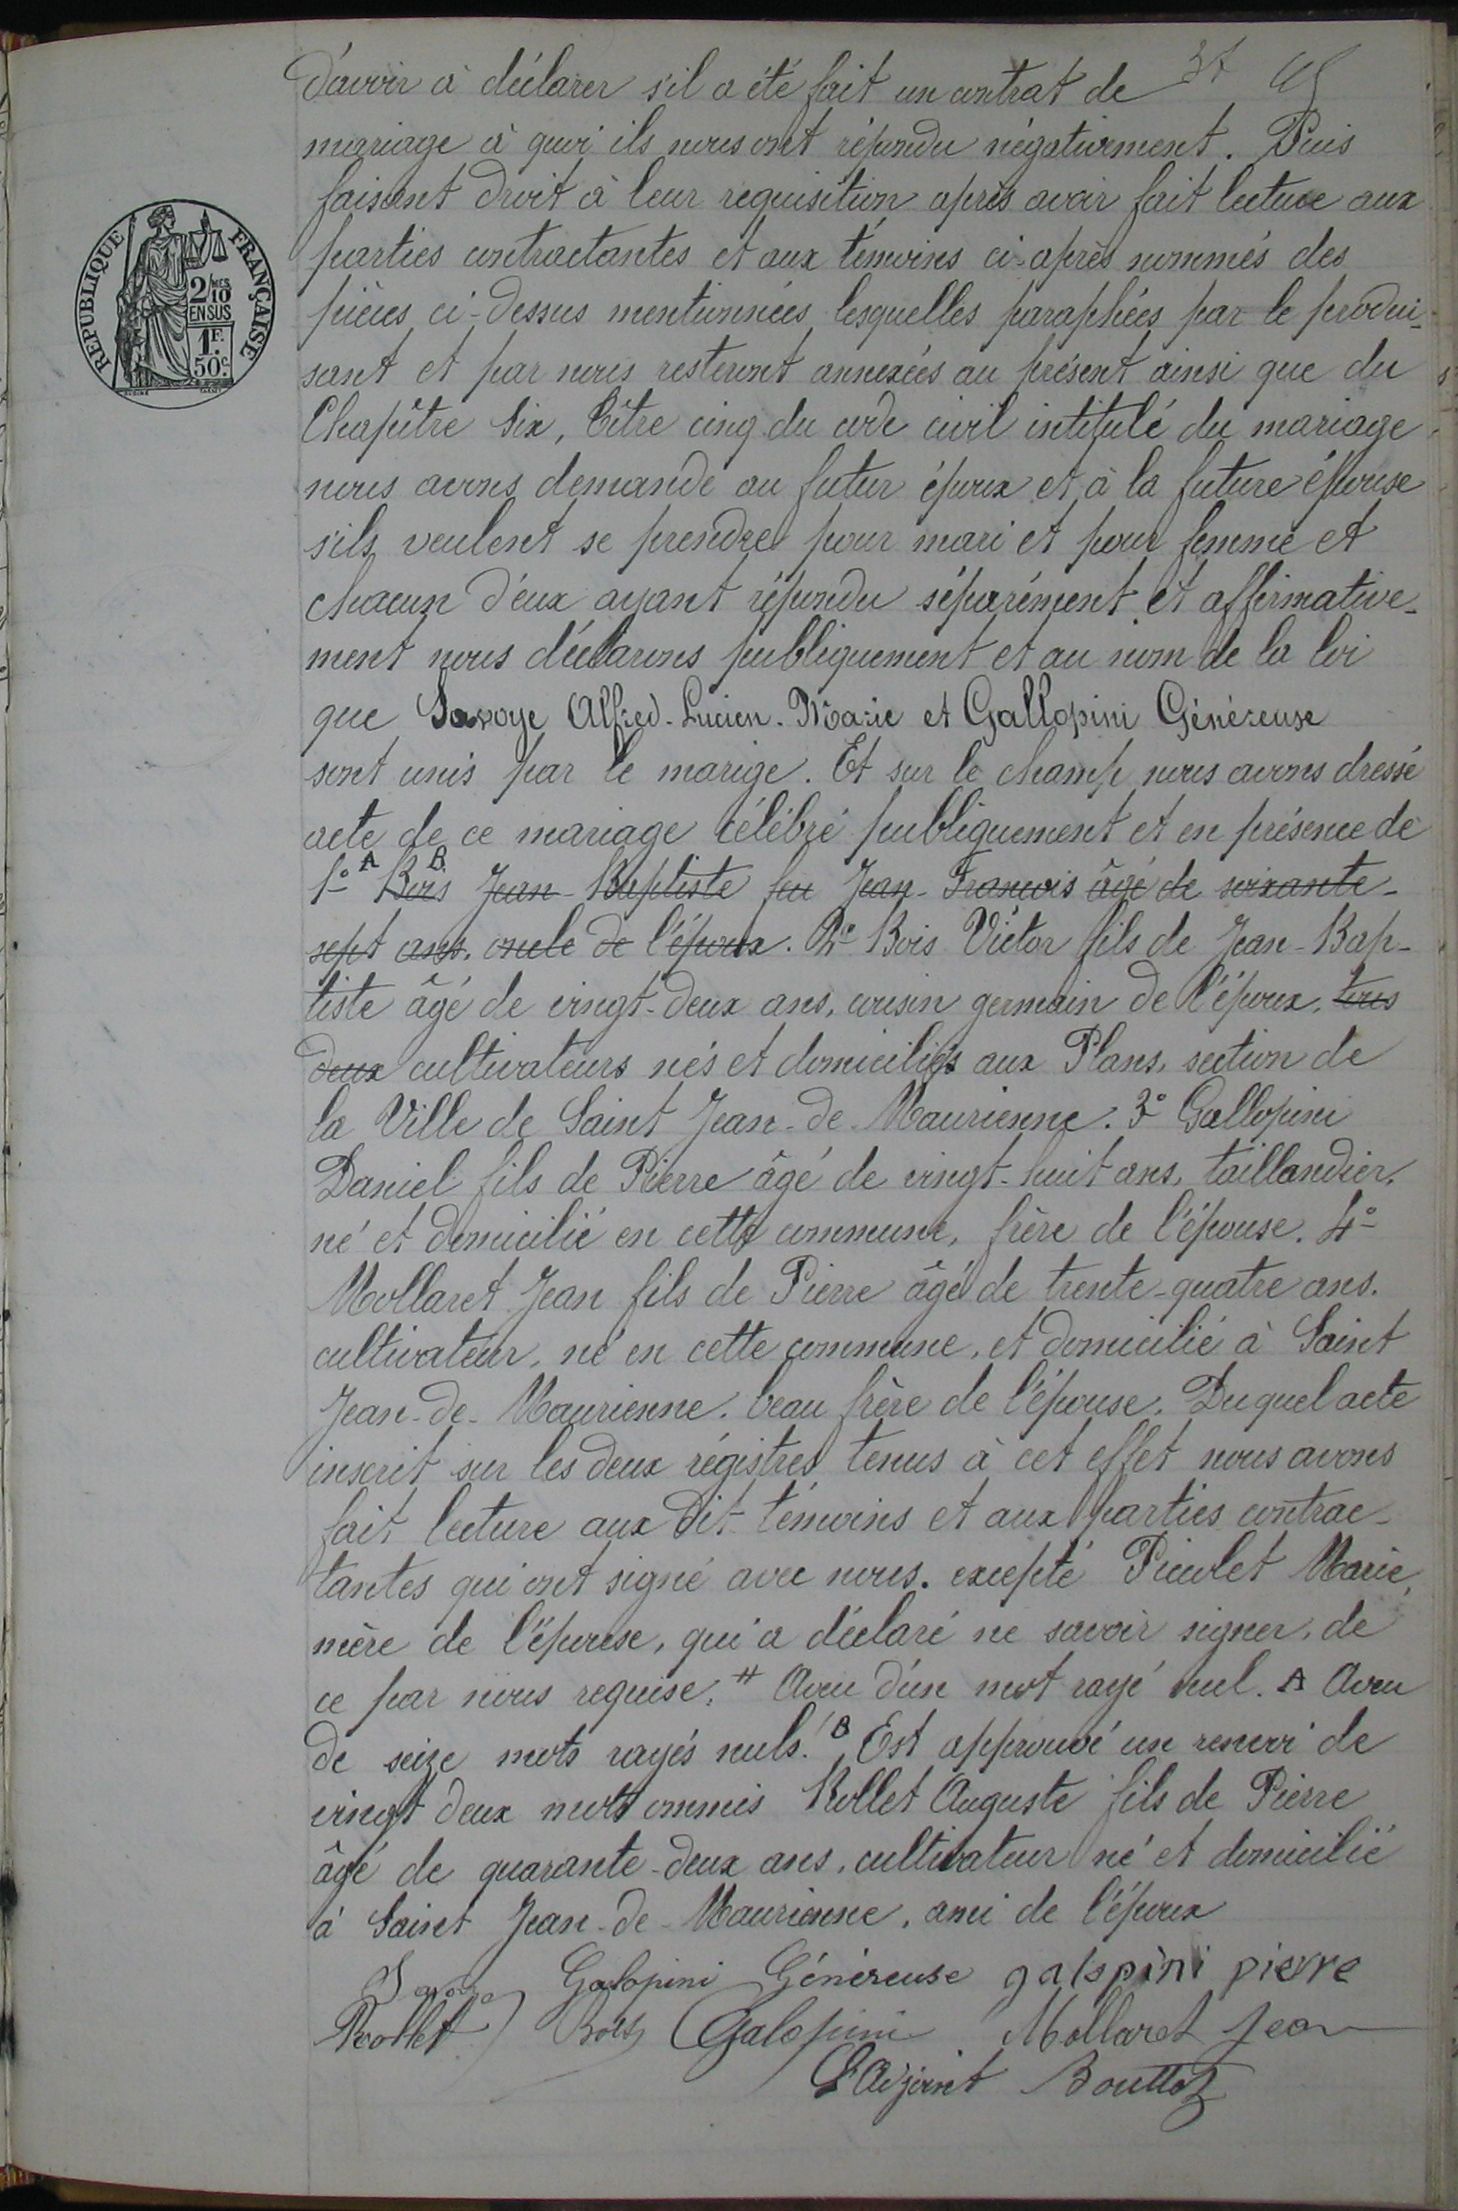 d'avoir à déclarer s'il a été fait un contrat de
mariage à quoi ils nous ont répondu négativement. Puis
faisant droit à leur requisition après avoir fait lecture aux
parties contractantes et aux témoins ci-après nommés des
pièces ci-dessus mentionnées lesquelles paraphées par le produi-
sant et par nous resteront annexées au présent ainsi que du
Chapitre Six, titre cinq du code civil intitulé du mariage
nous avons demandé au futur époux et à la future épouse
s'ils veulent se prendre pour mari et pour femme et
chacun d'eux ayant répondu séparément et affirmative-
ment nous déclarons publiquement et au nom de la loi
que Savoye Alfred-Lucien-Marie et Gallopini Généreuse
sont unis par le marige. Et sur le champ nous avons dressé
acte de ce mariage célébré publiquement et en présence de
1° A Bois B Jean-Baptiste feu Jean-François âgé de soixante-
sept ans, oncle de l'époux. 2° Bois Victor fils de Jean-Bap-
tiste âgé de vingt-deux ans, cousin germain de l'époux, tous
deux cultivateurs nés et domiciliés aux Plans, section de
la Ville de Saint Jean-de-Maurienne. 3° Gallopini
Daniel fils de Pierre âgé de vingt-huit ans, taillandier,
né et domicilié en cette commune, frère de l'épouse. 4°
Mollaret Jean fils de Pierre âgé de trente-quatre ans.
cultivateur, né en cette commune, et domicilié à Saint
Jean-de-Maurienne. beau frère de l'épouse. Du quel acte
inscrit sur les deux régistres tenus à cet effet nous avons
fait lecture aux dit témoins et aux parties contrac-
tantes qui ont signé avec nous. excepté Picolet Marie,
mère de l'épouse, qui a déclaré ne savoir signer, de
ce par nous requise. # Aveu d'un mot rayé nul. A Aveu
de seize mots rayés nuls. B Est approuvé un renvoi de
vingt deux mots ommis Rollet Auguste fils de Pierre
âgé de quarante-deux ans, cultivateur né et domicilié
à Saint Jean-de-Maurienne, ami de l'époux
Savoye Galopini Généreuse galopini pierre
Rollet Bois Galopini Mollaret Jean
L'Adjoint Bouttaz
RÉPUBLIQUE FRANÇAISE
2/10 MES
EN SUS
1F.
50c.